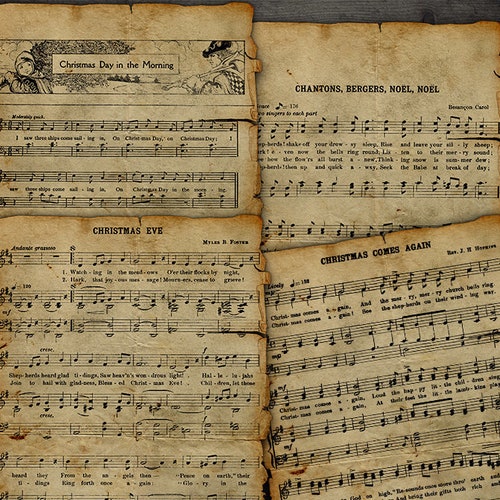 Christmas Day in the Morning
Moderately quick.
I saw three ships come sail - ing in, On Christ-mas Day, on Christmas Day; I
saw three ships come sail - ing in, On Christmas Day in the morn - ing.
CHANTONS, BERGERS, NOEL, NOËL
= 176
singers to each part
Besançon Carol
herds! shake off your drow - sy sleep, Rise and leave your sil - ly sheep;
e - ven now the bells ring round; Lis - ten to their mer - ry sound;
how the flow'rs all burst a - new, Think - ing snow is sum - mer dew;
herds! then up and quick a - way, Seek the Babe at break of day;
CHRISTMAS EVE
Andante grazioso
MYLES B. FOSTER
1. Watch - ing in the mead - ows O'er their flocks by night,
2. Hark, that joy - ous mes - sage! Mourn - ers, cease to grieve!
= 120
cresc.
Shep-herds heard glad ti - dings, Saw heav'n's won - drous light! Hal - le - lu - jahs
Join to hail with glad-ness, Bless - ed Christ - mas Eve! Chil - dren, let those
cresc.
mf
heard they From the an - gels then "Peace on earth," their
ti - dings Ring forth once a - gain: Glo - ry in the
CHRISTMAS COMES AGAIN
Rev. J. H.
= 108
Christ-mas comes a - gain, And the mer - ry, mer - ry church bells ring
Christ-mas comes a - gain! See the shep-herds on their wind - ing way
mf
Christ-mas comes a - gain, Loud the hap - py lit - tle chil - dren sing
Christ-mas comes a - gain, At their feet the lit - tle lamb-kins
God on high," Re-sounds once more thro' earth
And bring their gifts such rich